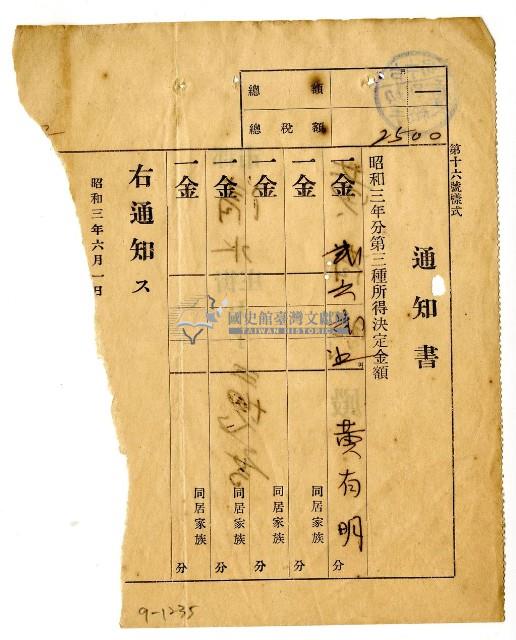 第十六號樣式
通知書
昭和三年分第三種所得決定金額
總額
總稅額
2500
一金
黃有明
分
一金
同居家族
分
一金
同居家族
分
一金
同居家族
分
一金
同居家族
分
右通知ス
昭和三年六月一日
國史館臺灣文獻館
TAIWAN HISTORICA
9-1235